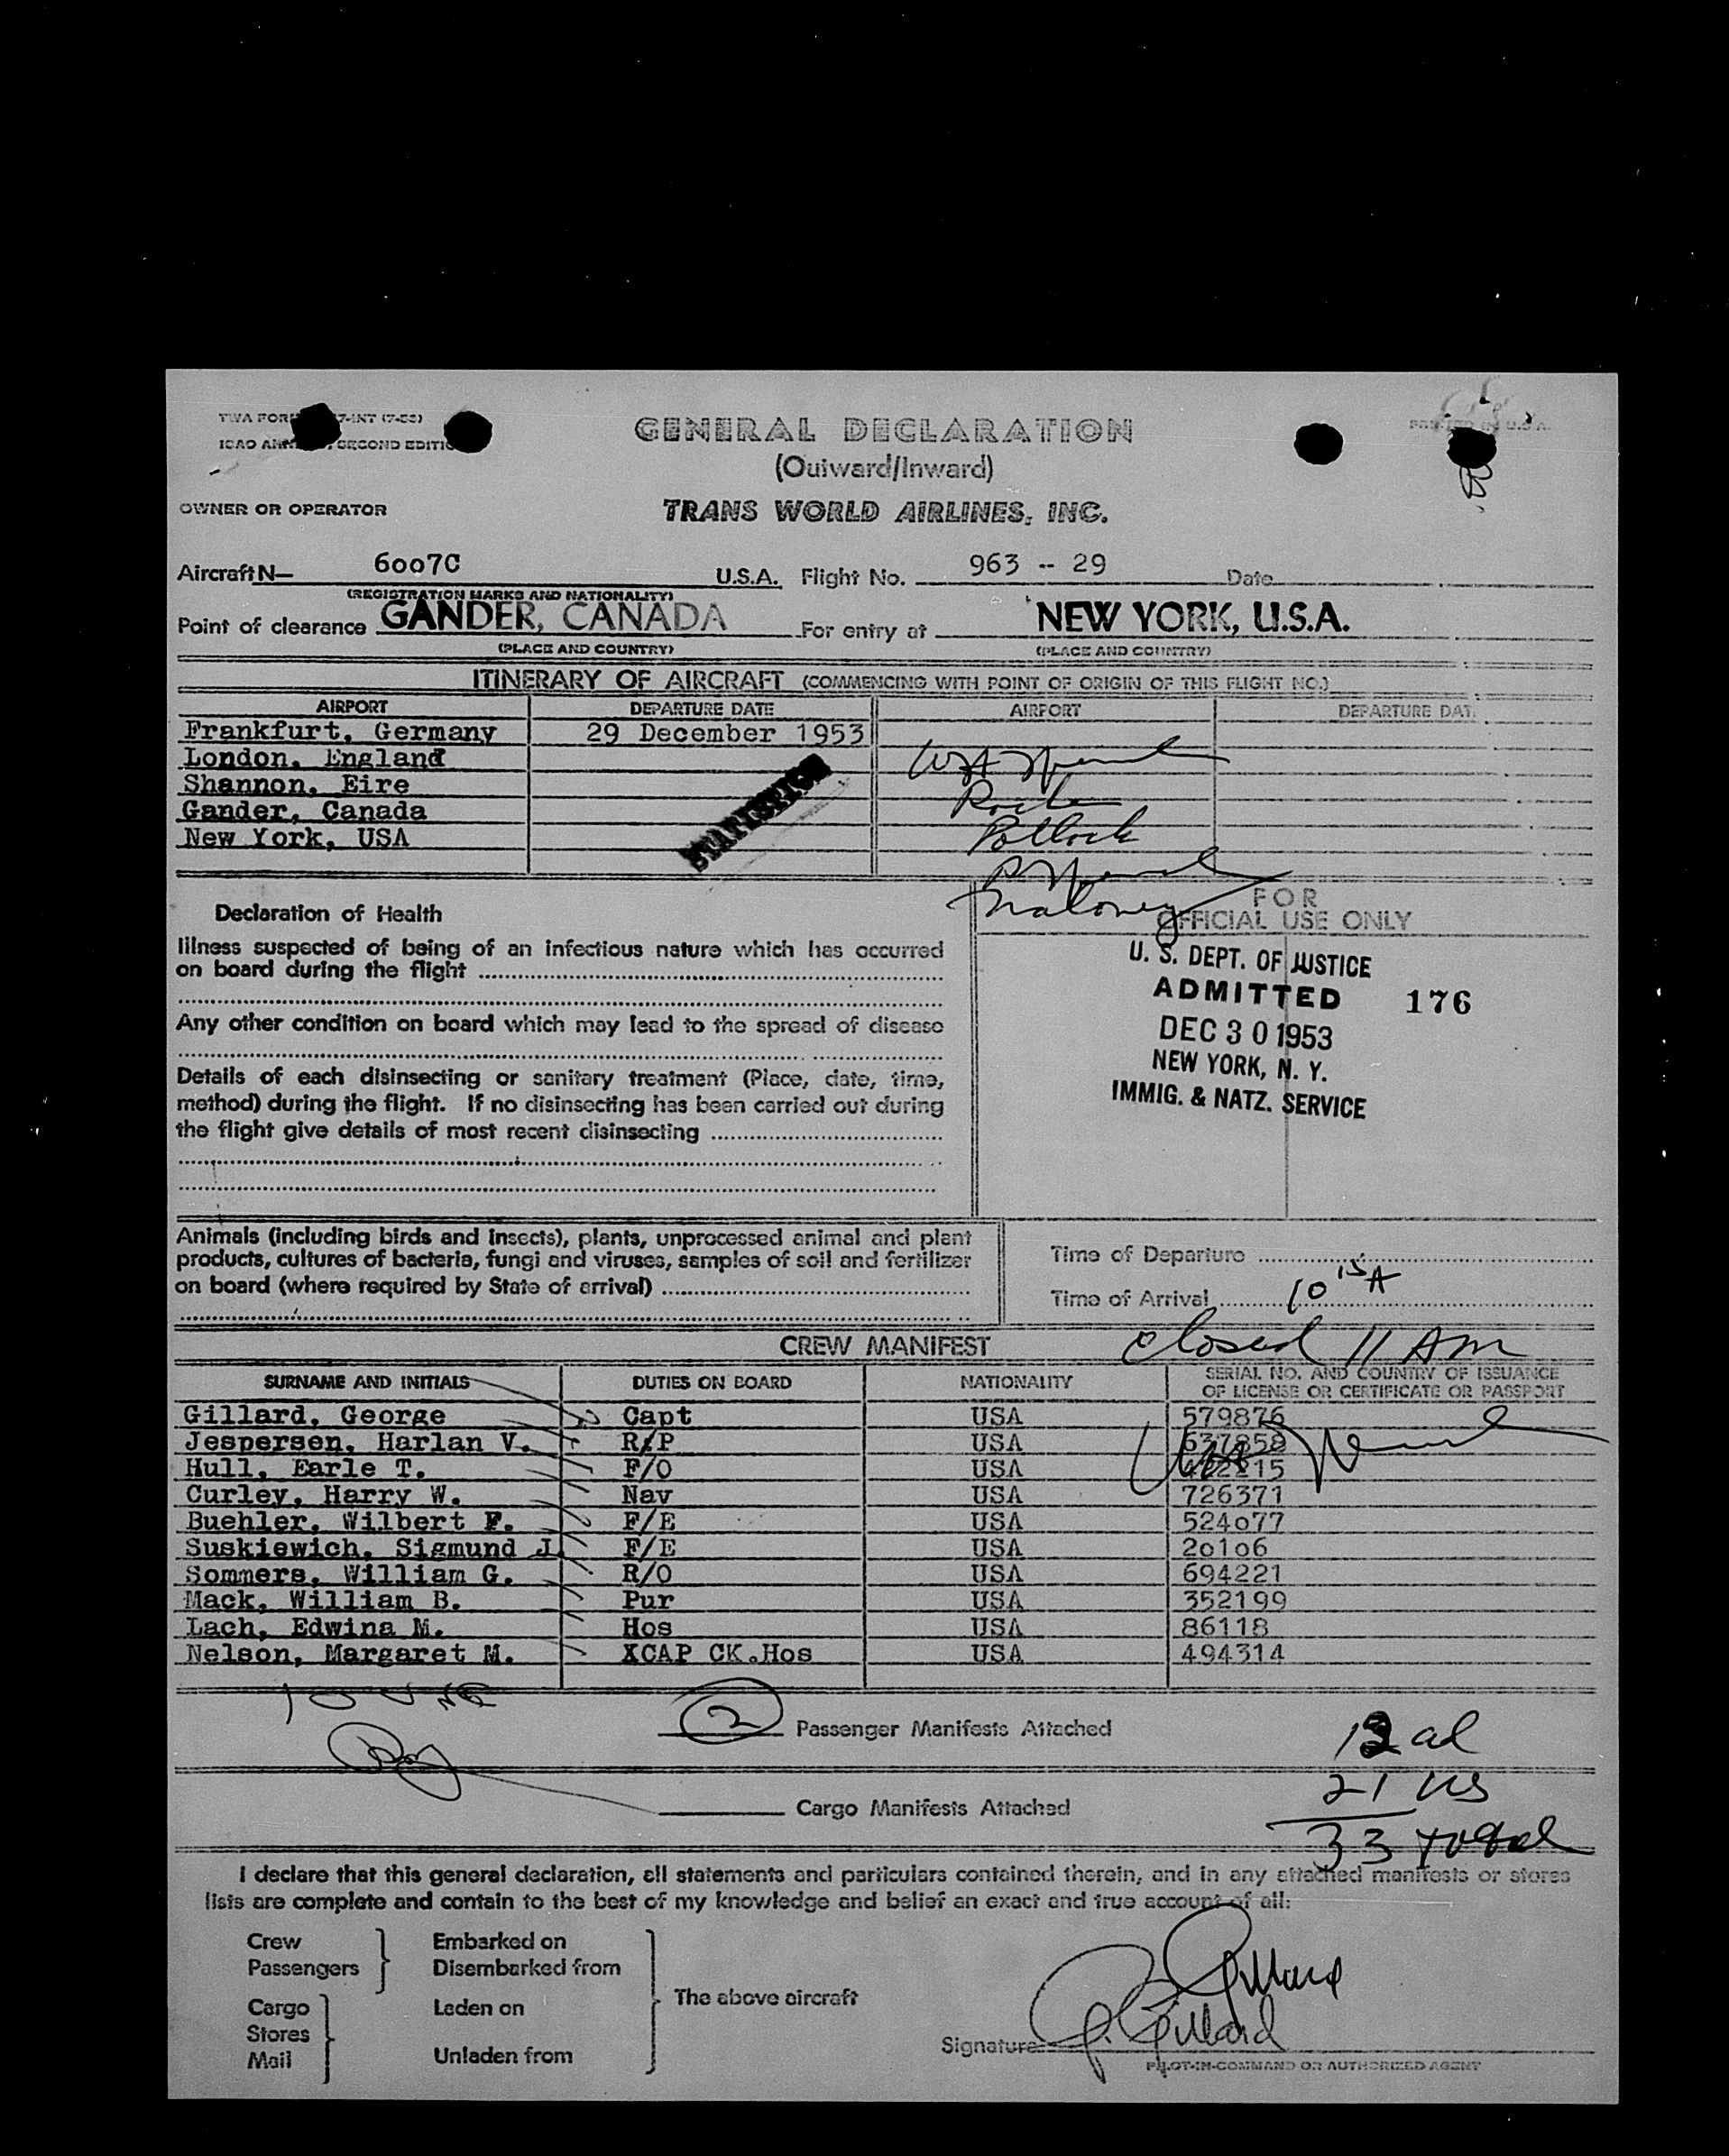 TWA FORM 7-INT (7-53)
ICAO ANNEX, SECOND EDITION
GENERAL DECLARATION
(Outward/Inward)
OWNER OR OPERATOR TRANS WORLD AIRLINES, INC.
Aircraft N— 6007C U.S.A. Flight No. 963 -- 29 Date
(REGISTRATION MARKS AND NATIONALITY)
Point of clearance GANDER, CANADA For entry at NEW YORK, U.S.A.
(PLACE AND COUNTRY) (PLACE AND COUNTRY)
ITINERARY OF AIRCRAFT (COMMENCING WITH POINT OF ORIGIN OF THIS FLIGHT NO.)
AIRPORT DEPARTURE DATE AIRPORT DEPARTURE DATE
Frankfurt, Germany 29 December 1953
London, England
Shannon, Eire
Gander, Canada
New York, USA
STATISTICS
Pollock
Maloney
Declaration of Health
FOR
OFFICIAL USE ONLY
Illness suspected of being of an infectious nature which has occurred
on board during the flight
Any other condition on board which may lead to the spread of disease
Details of each disinsecting or sanitary treatment (Place, date, time,
method) during the flight. If no disinsecting has been carried out during
the flight give details of most recent disinsecting
U. S. DEPT. OF JUSTICE
ADMITTED 176
DEC 30 1953
NEW YORK, N. Y.
IMMIG. & NATZ. SERVICE
Animals (including birds and insects), plants, unprocessed animal and plant
products, cultures of bacteria, fungi and viruses, samples of soil and fertilizer
on board (where required by State of arrival)
Time of Departure
Time of Arrival 10 15 A
CREW MANIFEST closed 11 AM
SURNAME AND INITIALS DUTIES ON BOARD NATIONALITY SERIAL NO. AND COUNTRY OF ISSUANCE OF LICENSE OR CERTIFICATE OR PASSPORT
Gillard, George Capt USA 579876
Jespersen, Harlan V. R/P USA 637858
Hull, Earle T. F/O USA
Curley, Harry W. Nav USA 726371
Buehler, Wilbert F. F/E USA 524077
Suskiewich, Sigmund J. F/E USA 20106
Sommers, William G. R/O USA 694221
Mack, William B. Pur USA 352199
Lach, Edwina M. Hos USA 86118
Nelson, Margaret M. XCAP CK.Hos USA 494314
2 Passenger Manifests Attached
12 al
21 us
33 total
Cargo Manifests Attached
I declare that this general declaration, all statements and particulars contained therein, and in any attached manifests or stores
lists are complete and contain to the best of my knowledge and belief an exact and true account of all:
Crew Embarked on
Passengers Disembarked from
Cargo Laden on The above aircraft
Stores
Mail Unladen from
Signature G. Gillard
PILOT-IN-COMMAND OR AUTHORIZED AGENT